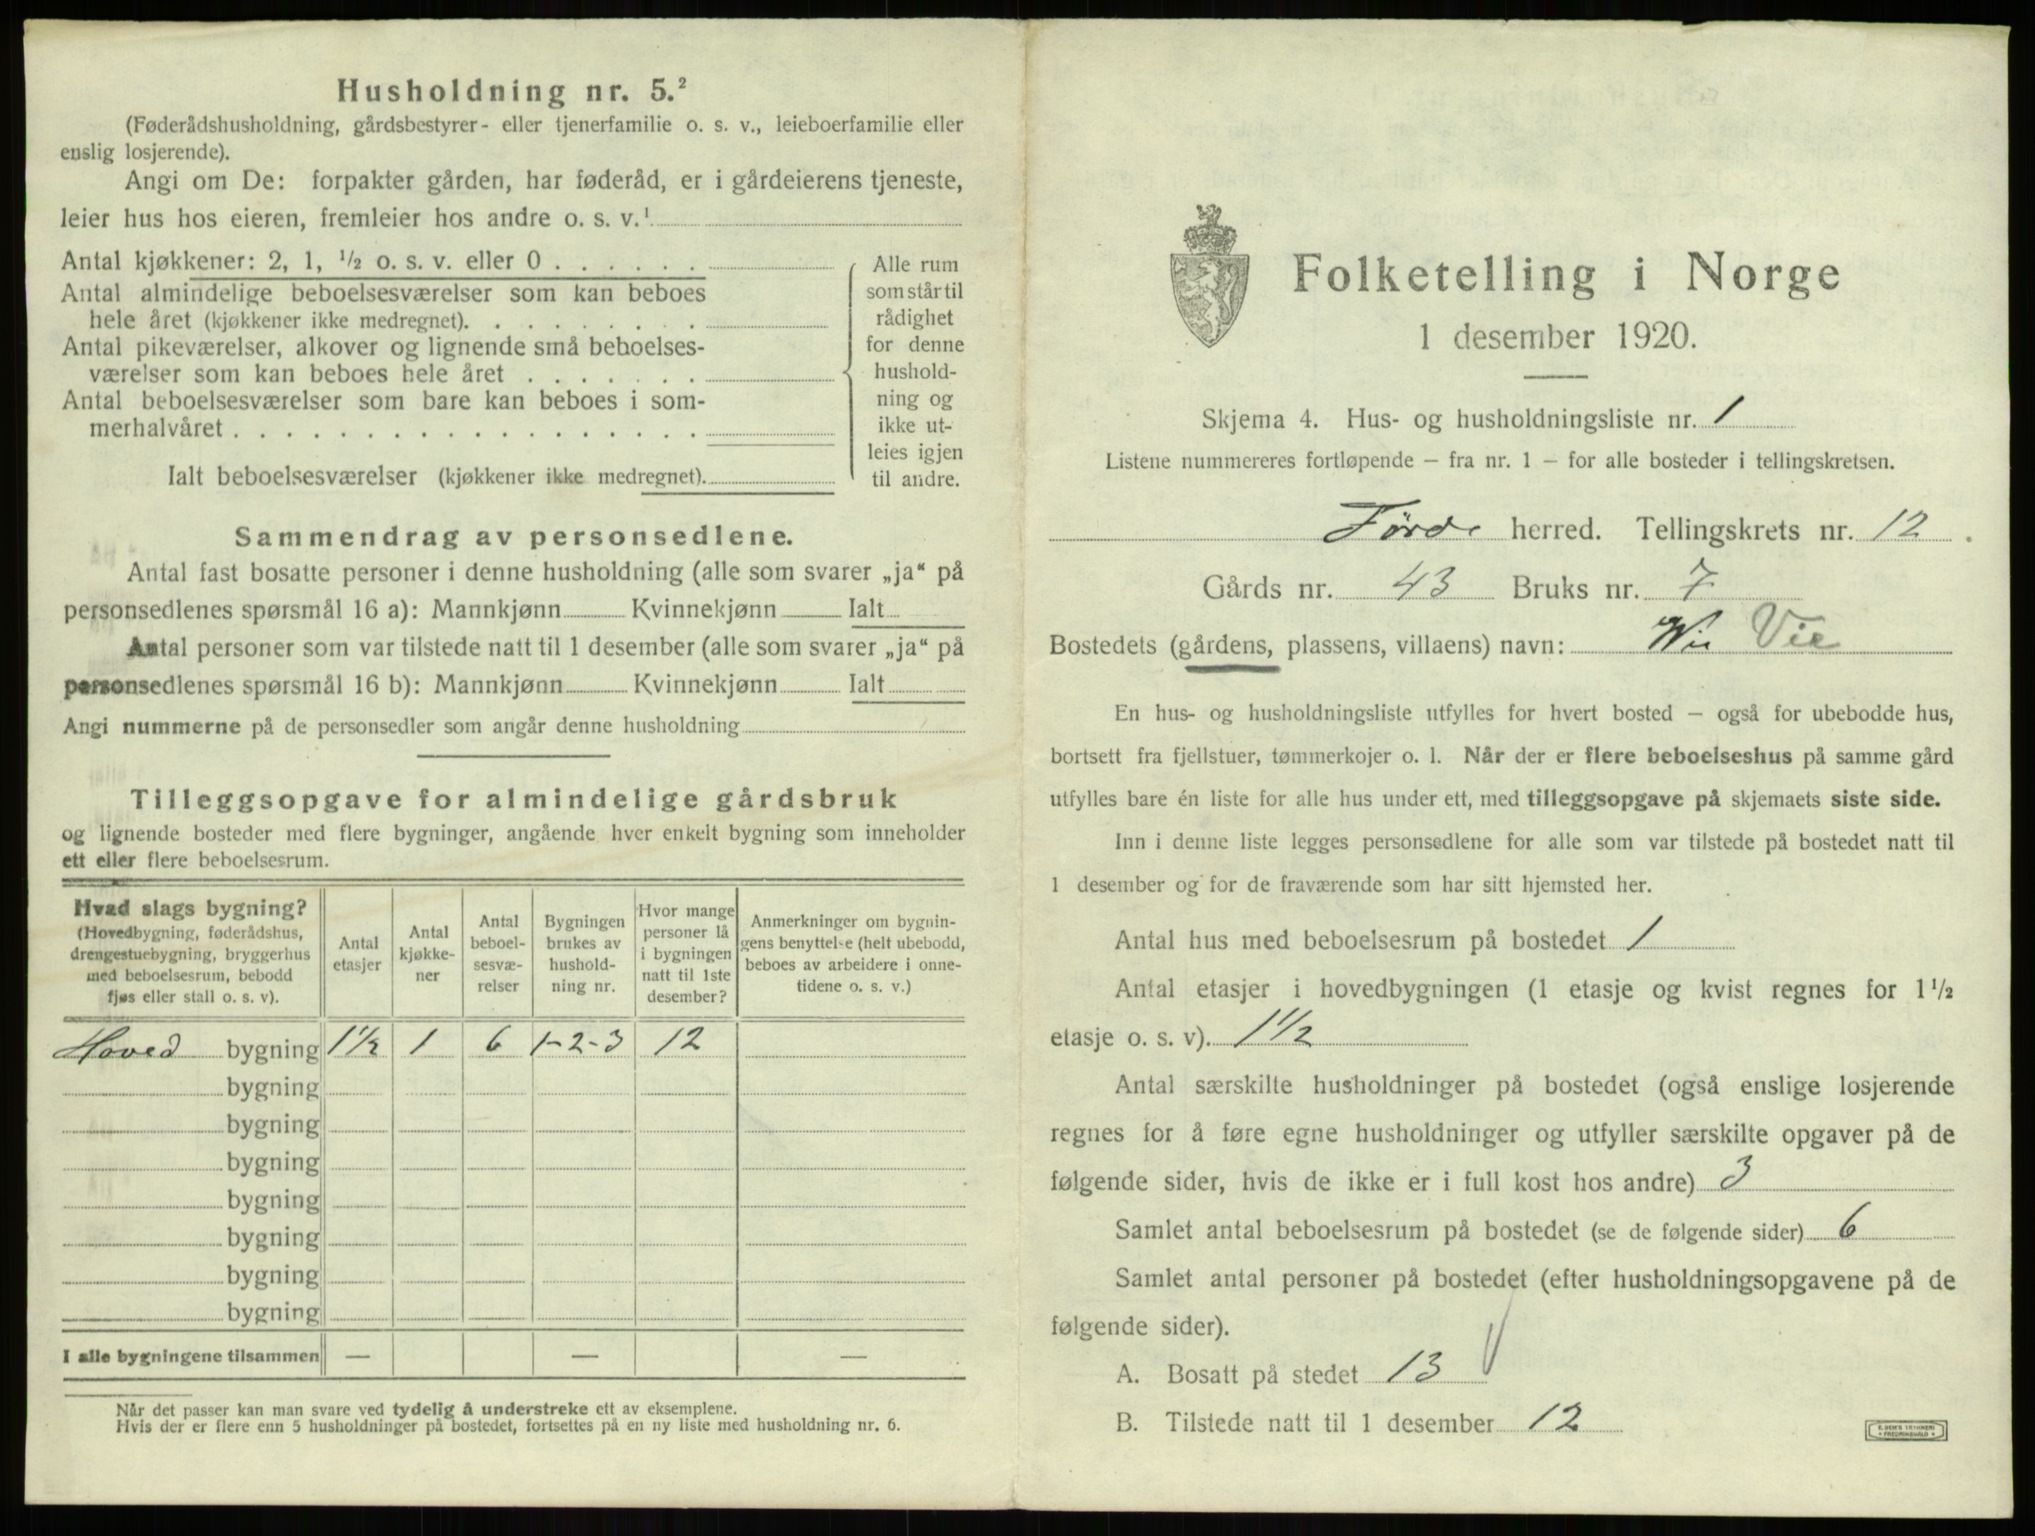 Husholdning nr. 5.²
(Føderådshusholdning, gårdsbestyrer- eller tjenerfamilie o. s. v., leieboerfamilie eller
enslig losjerende).
Angi om De: forpakter gården, har føderåd, er i gårdeierens tjeneste,
leier hus hos eieren, fremleier hos andre o. s. v.¹
Antal kjøkkener: 2, 1, ½ o. s. v. eller 0 . . . . . .
Antal almindelige beboelsesværelser som kan beboes
hele året (kjøkkener ikke medregnet). . . . . . . . .
Antal pikeværelser, alkover og lignende små beboelses-
værelser som kan beboes hele året . . . . . . .
Antal beboelsesværelser som bare kan beboes i som-
merhalvåret . . . . . . . . . . . . . . . . . .
Ialt beboelsesværelser (kjøkkener ikke medregnet).
Alle rum
som står til
rådighet
for denne
hushold-
ning og
ikke ut-
leies igjen
til andre.
Sammendrag av personsedlene.
Antal fast bosatte personer i denne husholdning (alle som svarer „ja“ på
personsedlenes spørsmål 16 a): Mannkjønn Kvinnekjønn Ialt
Antal personer som var tilstede natt til 1 desember (alle som svarer „ja“ på
personsedlenes spørsmål 16 b): Mannkjønn Kvinnekjønn Ialt
Angi nummerne på de personsedler som angår denne husholdning
Tilleggsopgave for almindelige gårdsbruk
og lignende bosteder med flere bygninger, angående hver enkelt bygning som inneholder
ett eller flere beboelsesrum.
Hvad slags bygning?
(Hovedbygning, føderådshus,
drengestuebygning, bryggerhus
med beboelsesrum, bebodd
fjøs eller stall o. s. v).
Antal
etasjer
Antal
kjøkke-
ner
Antal
beboel-
sesvæ-
relser
Bygningen
brukes av
hushold-
ning nr.
Hvor mange
personer lå
i bygningen
natt til 1ste
desember?
Anmerkninger om bygnin-
gens benyttelse (helt ubebodd,
beboes av arbeidere i onne-
tidene o. s. v.)
Hoved bygning 1½ 1 6 1-2-3 12
bygning
bygning
bygning
bygning
bygning
bygning
bygning
I alle bygningene tilsammen — — —
Når det passer kan man svare ved tydelig å understreke ett av eksemplene.
Hvis der er flere enn 5 husholdninger på bostedet, fortsettes på en ny liste med husholdning nr. 6.
Folketelling i Norge
1 desember 1920.
Skjema 4. Hus- og husholdningsliste nr. 1
Listene nummereres fortløpende – fra nr. 1 – for alle bosteder i tellingskretsen.
Førde herred. Tellingskrets nr. 12.
Gårds nr. 43 Bruks nr. 7
Bostedets (gårdens, plassens, villaens) navn: Wie Vie
En hus- og husholdningsliste utfylles for hvert bosted – også for ubebodde hus,
bortsett fra fjellstuer, tømmerkojer o. l. Når der er flere beboelseshus på samme gård
utfylles bare én liste for alle hus under ett, med tilleggsopgave på skjemaets siste side.
Inn i denne liste legges personsedlene for alle som var tilstede på bostedet natt til
1 desember og for de fraværende som har sitt hjemsted her.
Antal hus med beboelsesrum på bostedet 1
Antal etasjer i hovedbygningen (1 etasje og kvist regnes for 1½
etasje o. s. v). 1½
Antal særskilte husholdninger på bostedet (også enslige losjerende
regnes for å føre egne husholdninger og utfyller særskilte opgaver på de
følgende sider, hvis de ikke er i full kost hos andre) 3
Samlet antal beboelsesrum på bostedet (se de følgende sider) 6
Samlet antal personer på bostedet (efter husholdningsopgavene på de
følgende sider).
A. Bosatt på stedet 13
B. Tilstede natt til 1 desember 12